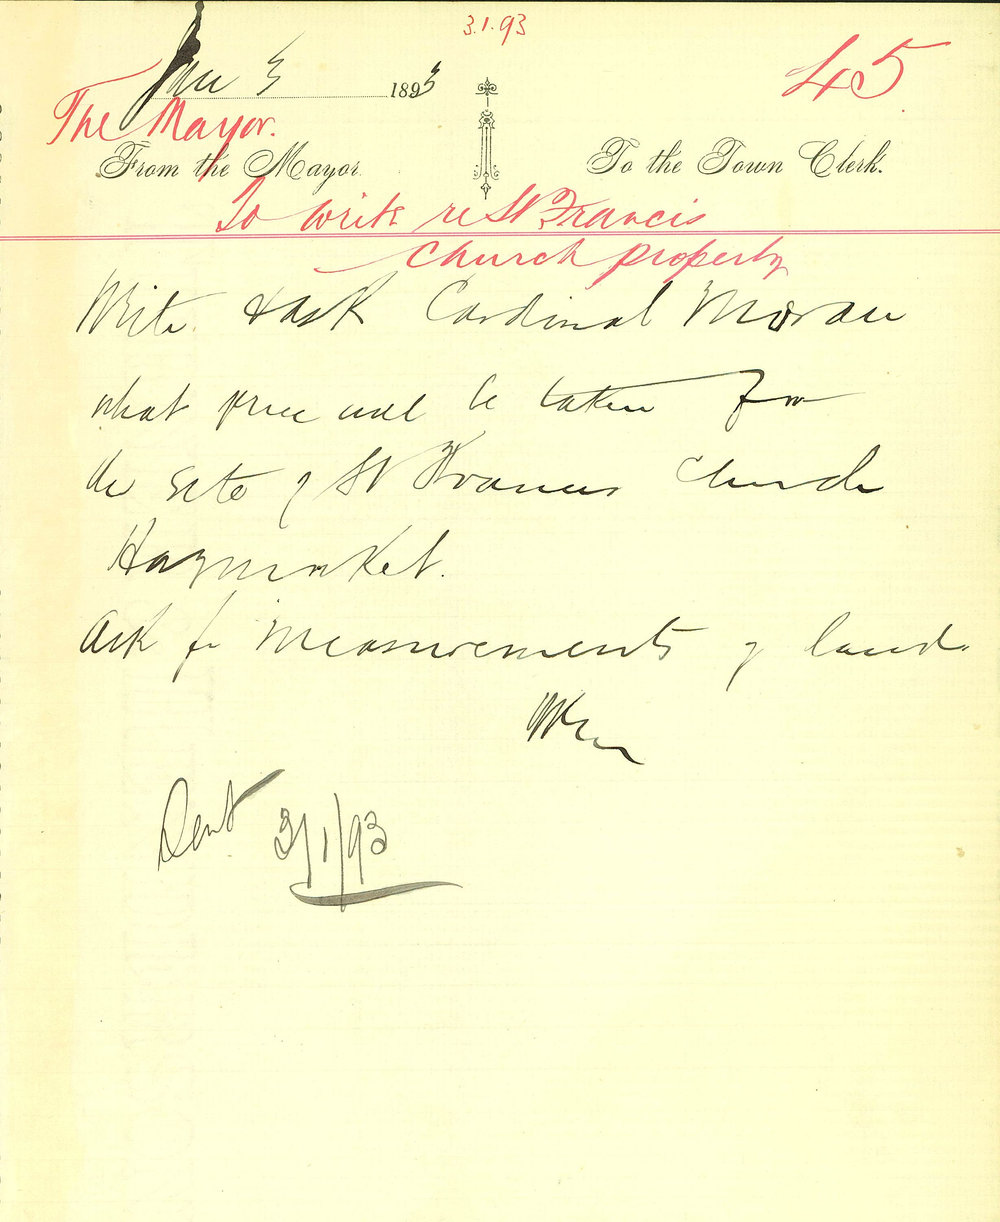 3.1.93
Jan 3 1893
45
The Mayor.
From the Mayor. To the Town Clerk.
To write re St Francis
Church property
Write & ask Cardinal Moran
what price will be taken for
the site of St Francis Church
Haymarket.
Ask for measurements of land.
Sent 3/1/93